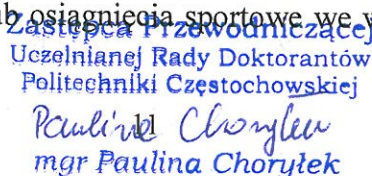 ub osiągnięcia sportowe we w
Zastępca Przewodniczącej
Uczelnianej Rady Doktorantów
Politechniki Częstochowskiej
Paulina Choryłek
11
mgr Paulina Choryłek